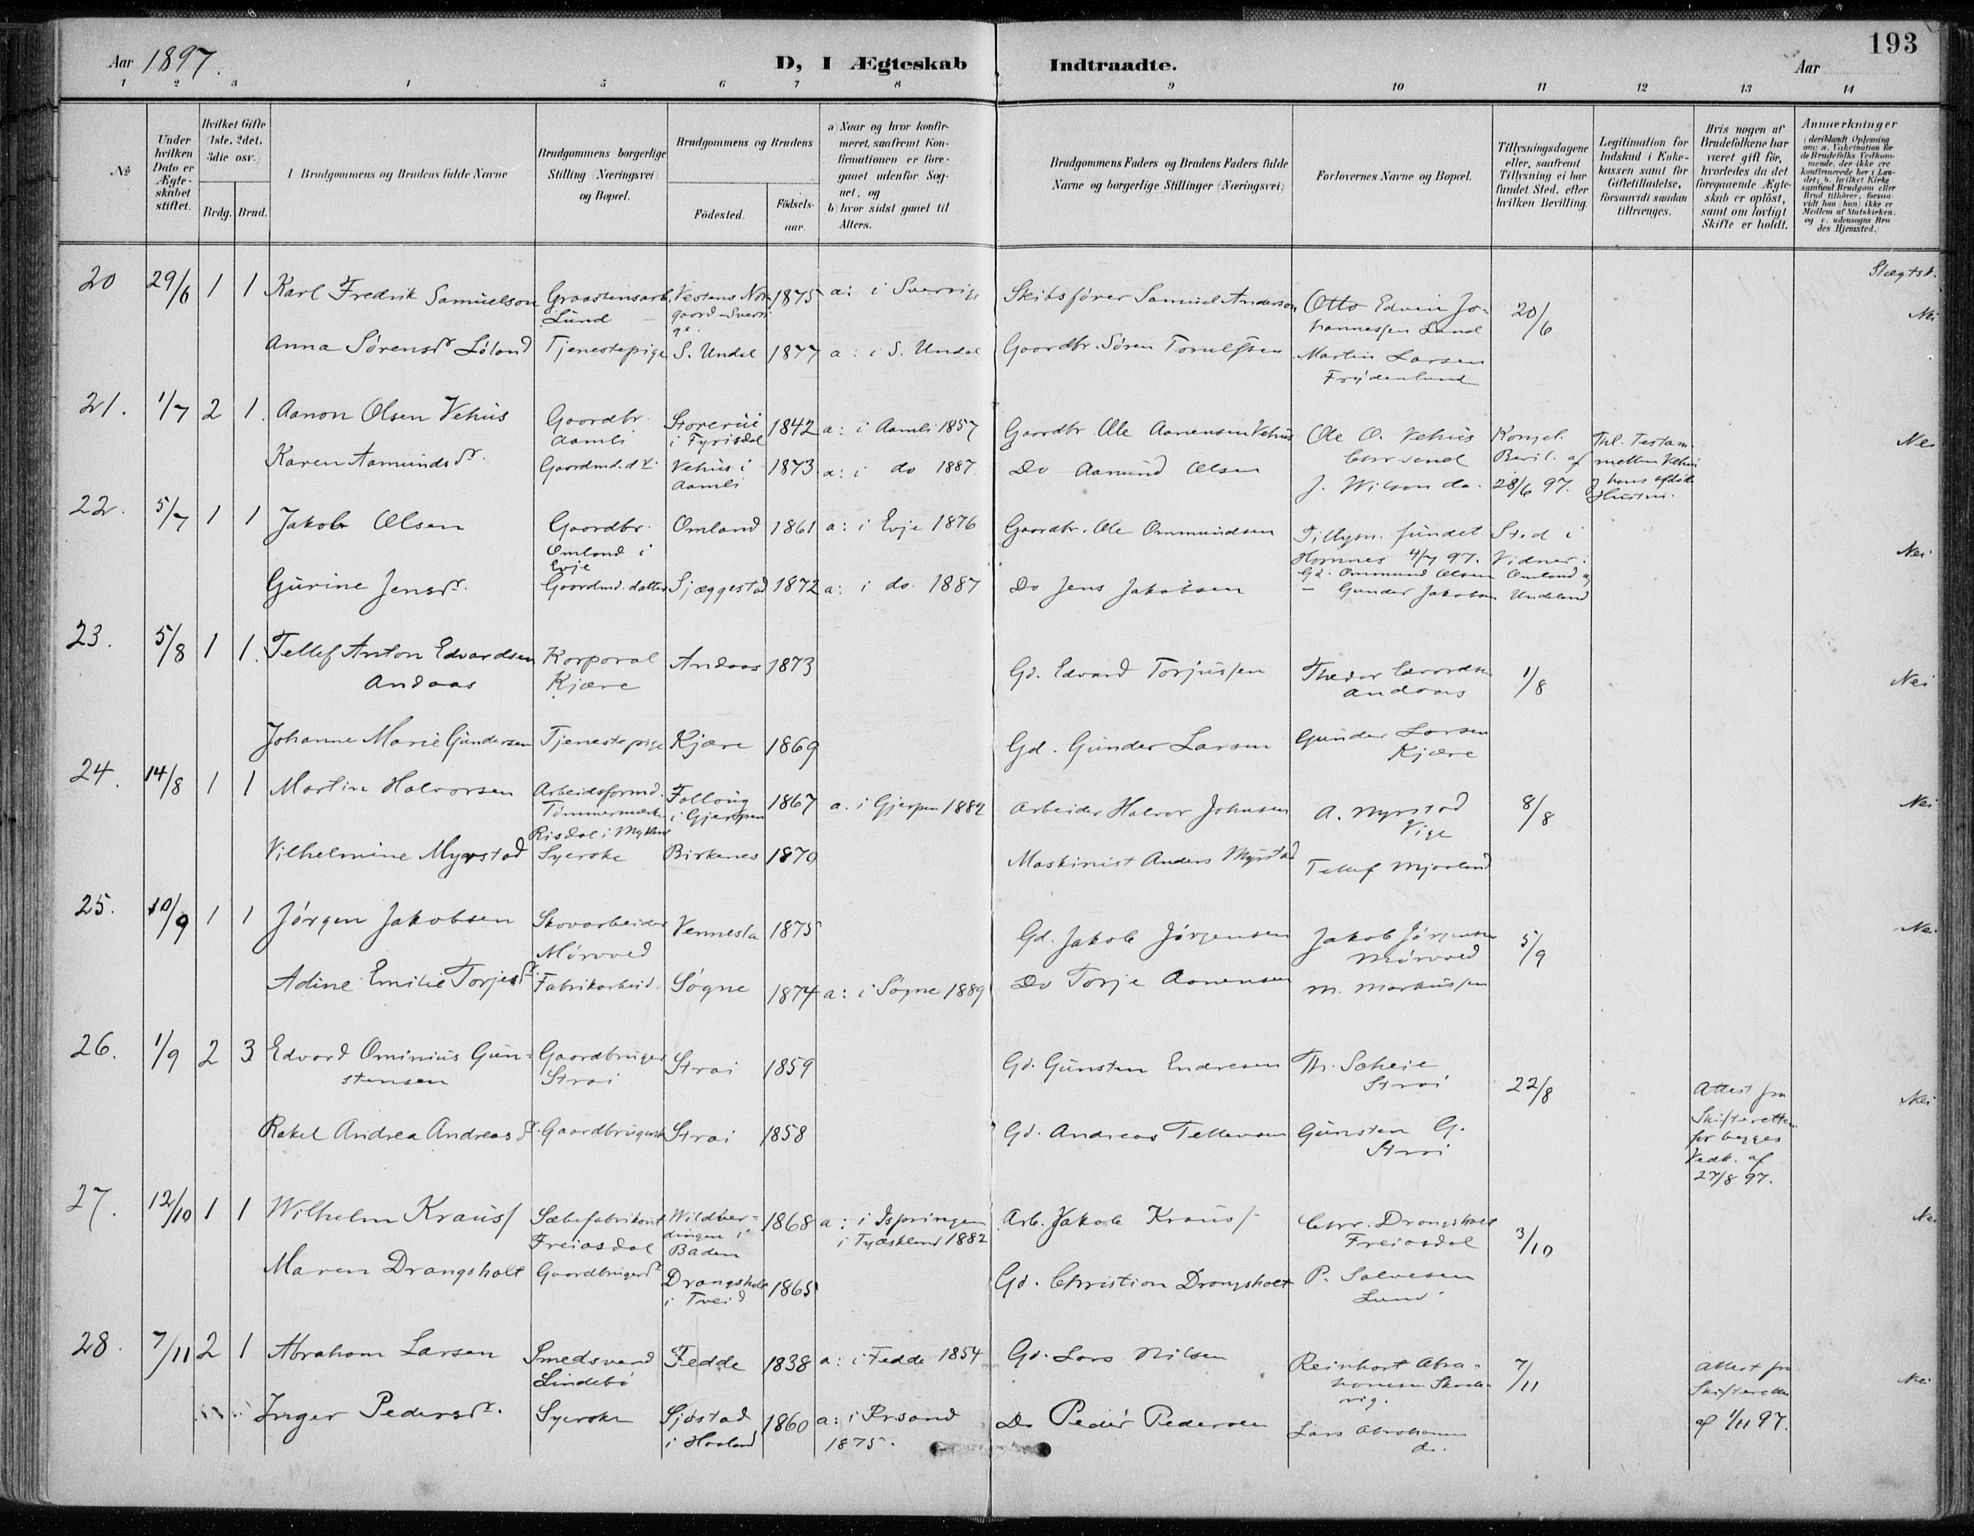 193
Aar 1897.
D, I Ægteskab Indtraadte.
Aar
1 2 3 4 5 6 7 8 9 10 11 12 13 14
No.
Under hvilken Dato er Ægteskabet stiftet.
Hvilket Gifte (1ste, 2det, 3die osv.)
Brdg. Brud.
Brudgommens og Brudens fulde Navne
Brudgommens borgerlige Stilling (Næringsvei) og Bopæl.
Brudgommens og Brudens
Fødested.
Fødsels-aar.
a) Naar og hvor konfirmeret, saafremt Konfirmationen er foregaaet udenfor Sognet, og
b) hvor sidst gaaet til Alters.
Brudgommens Faders og Brudens Faders fulde Navne og borgerlige Stillinger (Næringsvei)
Forlovernes Navne og Bopæl.
Tillysningsdagene eller, saafremt Tillysning ei har fundet Sted, efter hvilken Bevilling.
Legitimation for Indskud i Enkekassen samt for Giftetilladelse, forsaavidt saadan tiltrænges.
Hvis nogen af Brudefolkene har været gift før, hvorledes da det foregaaende Ægteskab er opløst, samt om lovligt Skifte er holdt.
Anmærkninger
Slægtsk.
20 29/6 1 1 Karl Fredrik Samuelson Graastensarb. Lund Vestens Norgaard-Sverige. 1875 a: i Sverrige Skibsfører Samuel Anderson Otto Edvin Johannessen Lund 20/6 Nei
Anna Sørensdr Løland Tjenestepige S. Undal 1877 a: i S. Undal Gaardbr. Søren Torulfsen Martin Larsen Frydenlund
21. 1/7 2 1. Aanon Olsen Vehus Gaardbr. Aamli Storerüi i Fyrisdal 1842 a: i Aamli 1857 Gaardbr. Ole Aanensen Vehus Ole O. Vehus Chrsand Kongel. Bevil. af 28/6 97. Thl. Testam. mellem Vehus og hans afdøde Hustru. Nei
Karen Aamundsdr. Gaardmd. dtr. Vehus i Aamli 1873 a: i do 1887. Do Aamund Olsen J. Wilson do.
22. 5/7 1 1 Jakob Olsen Gaardbr. Omland i Evje Omland 1861 a: i Evje 1876 Gaardbr. Ole Ommundsen Tillysn. fundet Sted i Hornnes 4/7 97. Vidner: Gd. Ommund Olsen Omland og Nei
Gurine Jensdr. Gaardmd. datter Sjæggestad 1872 a: i do. 1887 Do Jens Jakobsen - Gunder Jakobsen Undeland
23. 5/8 1 1. Tellef Anton Edvardsen Andaas Korporal Kjære Andaas 1873 Gd. Edvard Torjussen Thedor Edvardsen Andaas 1/8 Nei
Johanne Marie Gundersen Tjenestepige Kjære 1869 Gd. Gunder Larsen Gunder Larsen Kjære
24. 14/8 1 1 Martin Halvorsen Arbeidsformd. Tømmermærk. Risdal i Mykland Follaug i Gjerpen 1867 a. i Gjerpen 1882 Arbeider Halvor Johnsen A. Myrstad Vige 8/8 Nei
Vilhelmine Myrstad Syerske Birkenes 1870 Maskinist Anders Myrstad Tellef Mjaaland
25. 10/9 1 1 Jørgen Jakobsen Skovarbeider Mørvoed Vennesla 1875 Gd. Jakob Jørgensen Jakob Jørgensen Mørvoed 5/9 Nei
Adine Emilie Torjesdr. Fabrikarbeid. Søgne 1874 a: i Søgne 1889 Do Torje Aanensen M. Markussen
26. 1/9 2 3 Edvard Ominius Gunstensen Gaardbruger Strai Strai 1859 Gd. Gunsten Endresen Th. Scheie Strai 22/8 Attest fra Skifteretten for begges Vedk. af 27/8 97. Nei
Rakel Andrea Andreasdr. Gaardbrugersk Strai 1858 Gd. Andreas Tellevsen Gunsten G. Strai
27. 12/10 1 1 Wilhelm Krauss Sæbefabrikant Freiasdal Wildberdingen i Baden 1868 a: i Ispringen i Tyskland 1882 Arb. Jakob Krauss Chr. Drangsholt Freiasdal 3/10 Nei
Maren Drangsholt Gaardbrugerdr Drangsholt i Tveid 1865 Gd. Christian Drangsholt P. Salvesen Lund
28. 7/11 2 1 Abraham Larsen Smedsvend Lindebø Fedde 1838 a: i Fedde 1854 Gd. Lars Nilsen Reinhart Abrahamsen 7/11 Attest fra Skifteretten af 1/11 97. Nei
Inger Pedersdr. Syerske Sjøstad i Haaland 1860 a: i Krsand 1875. Do Peder Pedersen Lars Abrahamsen do.